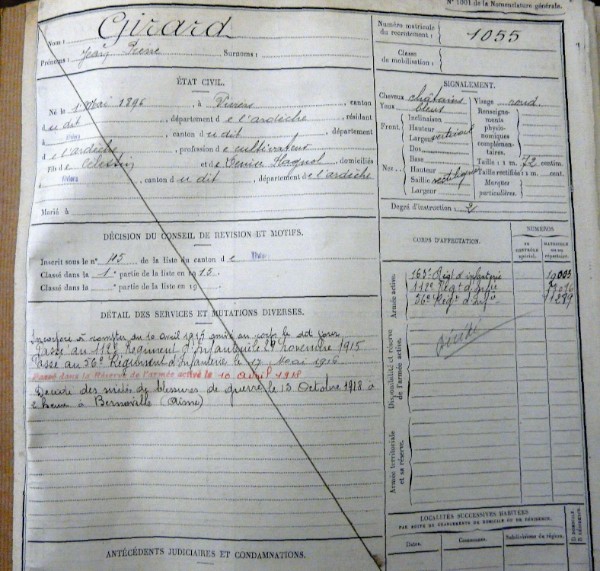 N° 1001 de la Nomenclature générale.
Nom : Girard
Prénoms : Jean Pierre Surnoms :
Numéro matricule du recrutement : 1055
Classe de mobilisation :
ÉTAT CIVIL.
Né le 1 Mai 1896, à, canton
du dit, département de l'ardèche, résidant
à, canton du dit, département
de l'ardèche, profession de cultivateur
Fils de Célestin et de, domiciliés
à, canton du dit, département de l'ardèche
Marié à
SIGNALEMENT.
Cheveux châtains Visage rond
Yeux bleus
Inclinaison
Front Hauteur
Largeur
Nez : Dos
Base
Hauteur
Saillie
Largeur
Renseignements physionomiques complémentaires.
Taille : 1 m. 72 centim.
Taille rectifiée : 1 m. cent.
Marques particulières.
Degré d'instruction : 2
DÉCISION DU CONSEIL DE RÉVISION ET MOTIFS.
Inscrit sous le n° 45 de la liste du canton de
Classé dans la 1e partie de la liste en 1915.
Classé dans la partie de la liste en 19
CORPS D'AFFECTATION.
NUMÉROS
AU CONTRÔLE spécial.
MATRICULE ou au répertoire.
Armée active.
163e Régt d'infanterie
112e Régt d'infie
56e Régt d'infie
Disponibilité et réserve de l'armée active.
Armée territoriale et sa réserve.
DÉTAIL DES SERVICES ET MUTATIONS DIVERSES.
Incorporé à compter du 10 avril 1915 arrivé au corps le dit jour
Passé au 112e Régiment d'Infanterie novembre 1915
Passé au 56e Régiment d'Infanterie le 17 Mai 1916
Passé dans la Réserve de l'armée active le 10 avril 1918
Décédé des suites de blessures de guerre le 13 Octobre 1918 à
heures à Bernoville (Aisne)
LOCALITÉS SUCCESSIVES HABITÉES
PAR SUITE DE CHANGEMENTS DE DOMICILE OU DE RÉSIDENCE.
Dates. Communes. Subdivisions de région.
ANTÉCÉDENTS JUDICIAIRES ET CONDAMNATIONS.